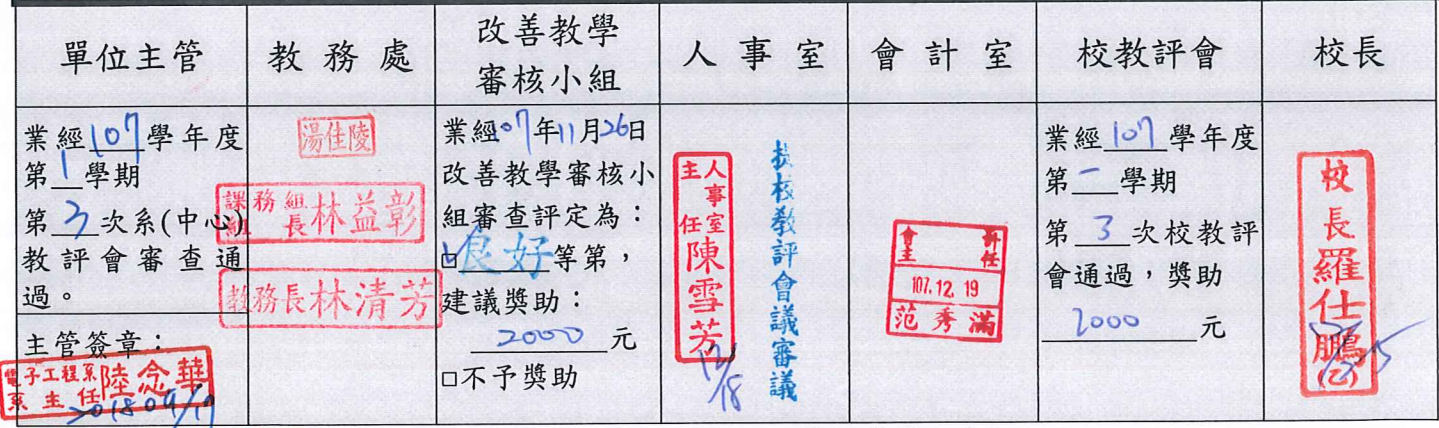 單位主管
教務處
改善教學
審核小組
人事室
會計室
校教評會
校長
業經107學年度
第1學期
第3次系(中心)
教評會審查通
過。
主管簽章：
電子工程系
系主任
陸念華
2018 09/17
湯佳陵
課務組
組長
林益彰
教務長林清芳
業經107年11月26日
改善教學審核小
組審查評定為：
☑良好等第，
建議獎助：
2000元
□不予獎助
人事室
主任
陳雪芳
12/18
校教評會議審議
會計
主任
107.12.19
范秀滿
業經107學年度
第一學期
第3次校教評
會通過，獎助
2000元
校長羅仕鵬
(乙)